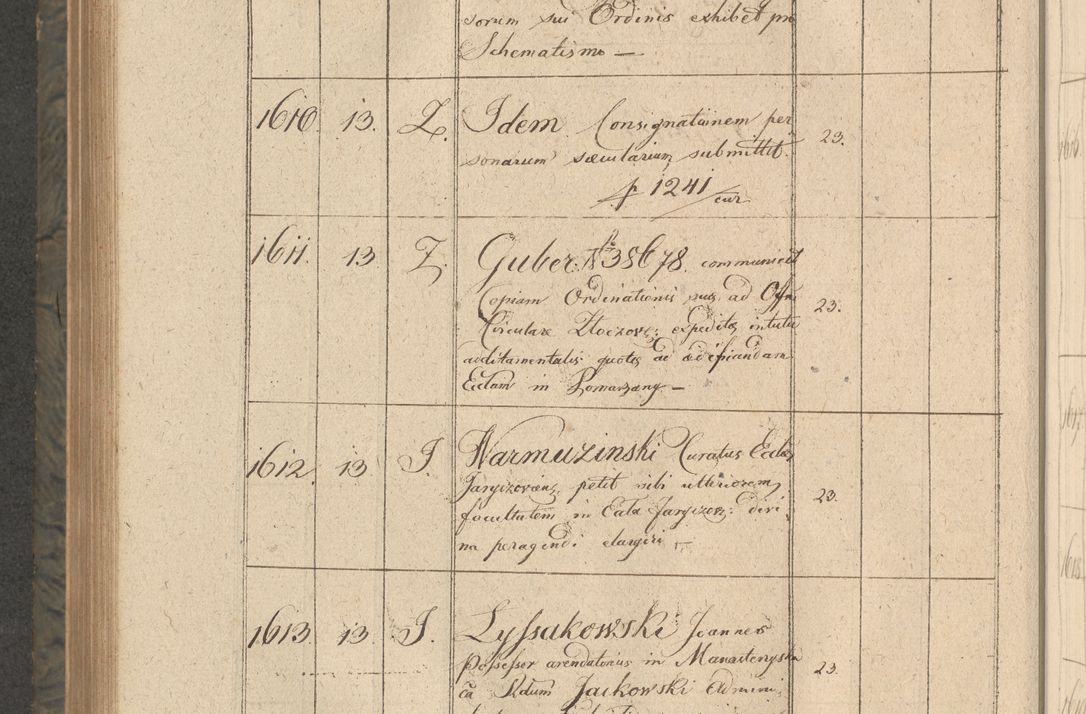 sorum sui Ordinis exhibet pro
Schematismo —
1610. 13. Z. Idem Consignationem per
sonarum sæcularium submittit. 23.
p 1241/cur
1611. 13 Z. Guber. N 35678. communicat
Copiam Ordinationis suæ ad Offm
Circulare Zloczov: expeditæ intuitu 23.
additamentalis quotæ ad ædificandam
Eclam in Pomarzany —
1612. 13 J. Warmuzinski Curatus Eccles
petit sibi ulteriorem
facultatem in Eccla Jaryczov: divi, 23.
na peragendi elargiri —
1613. 13. J. Lyssakowski Joannes
Possessor arendatorius in Manasterzyska 23.
ca Rdum Jackowski Admini,